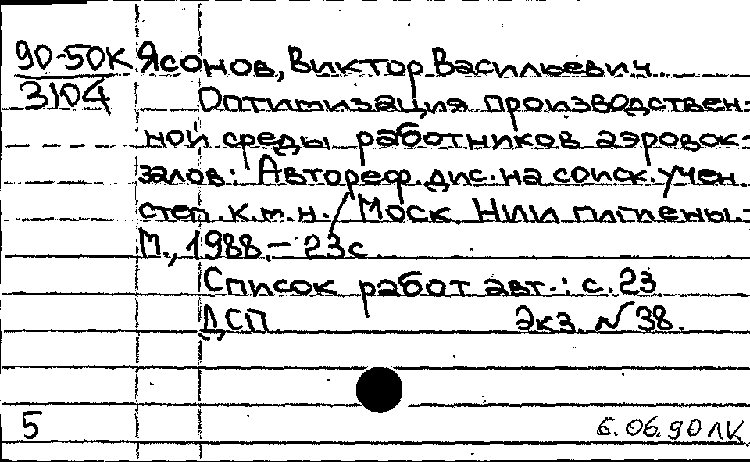 90-50К Ясонов, Виктор Васильевич
3104 Оптимизация производствен-
ной среды работников аэровок-
залов: Автореф. дис. на соиск. учен.
степ. к.м.н. / Моск. НИИ гигиены.-
М., 1988.- 23с
Список работ авт.: с. 23
ДСП Экз. №38.
5 6.06.90 ЛК